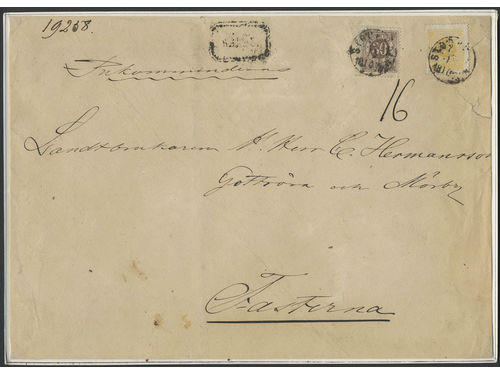 19258.
30
Rekommenderas
16
Landtbrukaren H. Herr C. Hermansson
Gottröra och Mörby
Fasterna